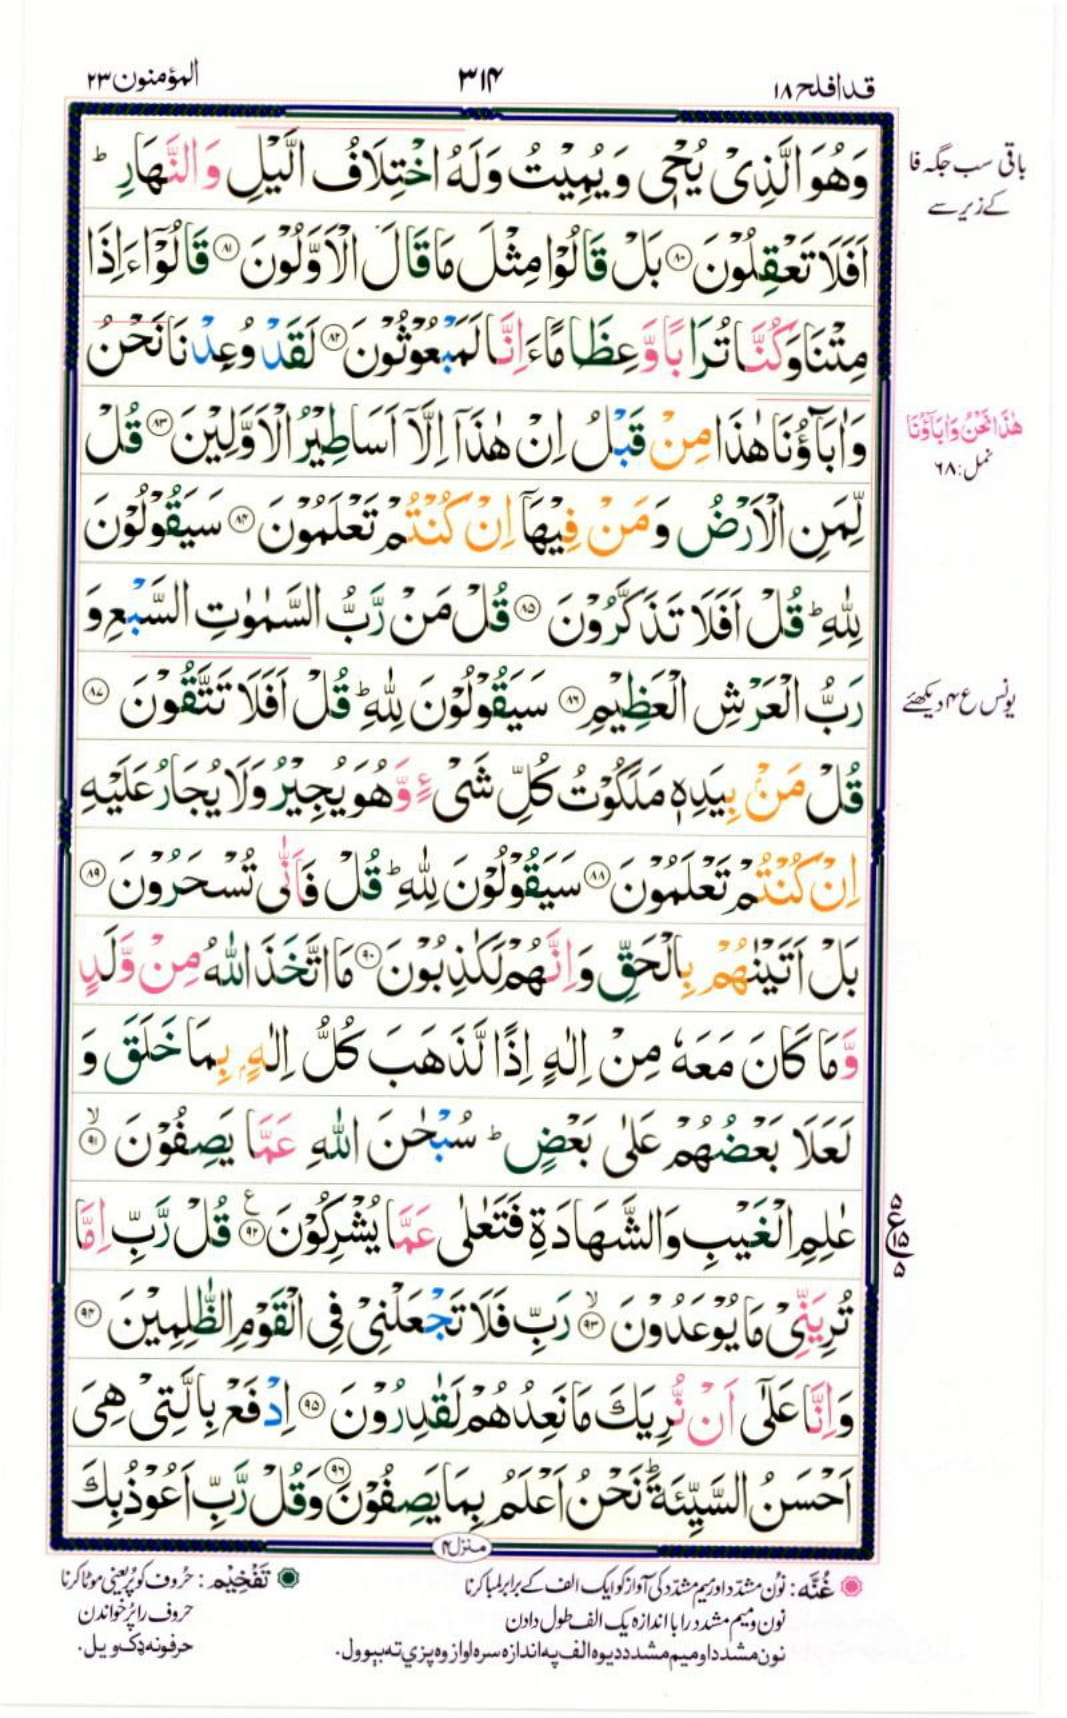 قد افلح ۱۸
۳۱۴
المؤمنون ۲۳
وَهُوَ الَّذِیْ یُحْیٖ وَ یُمِیْتُ وَلَهُ اخْتِلَافُ الَّیْلِ وَ النَّهَارِ ؕ
اَفَلَا تَعْقِلُوْنَ ﴿۸۰﴾ بَلْ قَالُوْا مِثْلَ مَا قَالَ الْاَوَّلُوْنَ ﴿۸۱﴾ قَالُوْۤا ءَاِذَا
مِتْنَا وَ كُنَّا تُرَابًا وَّ عِظَامًا ءَاِنَّا لَمَبْعُوْثُوْنَ ﴿۸۲﴾ لَقَدْ وُعِدْنَا نَحْنُ
وَ اٰبَآؤُنَا هٰذَا مِنْ قَبْلُ اِنْ هٰذَاۤ اِلَّاۤ اَسَاطِیْرُ الْاَوَّلِیْنَ ﴿۸۳﴾ قُلْ
لِّمَنِ الْاَرْضُ وَ مَنْ فِیْهَاۤ اِنْ كُنْتُمْ تَعْلَمُوْنَ ﴿۸۴﴾ سَیَقُوْلُوْنَ
لِلّٰهِ ؕ قُلْ اَفَلَا تَذَكَّرُوْنَ ﴿۸۵﴾ قُلْ مَنْ رَّبُّ السَّمٰوٰتِ السَّبْعِ وَ
رَبُّ الْعَرْشِ الْعَظِیْمِ ﴿۸۶﴾ سَیَقُوْلُوْنَ لِلّٰهِ ؕ قُلْ اَفَلَا تَتَّقُوْنَ ﴿۸۷﴾
قُلْ مَنْۢ بِیَدِهٖ مَلَكُوْتُ كُلِّ شَیْءٍ وَّ هُوَ یُجِیْرُ وَلَا یُجَارُ عَلَیْهِ
اِنْ كُنْتُمْ تَعْلَمُوْنَ ﴿۸۸﴾ سَیَقُوْلُوْنَ لِلّٰهِ ؕ قُلْ فَاَنّٰی تُسْحَرُوْنَ ﴿۸۹﴾
بَلْ اَتَیْنٰهُمْ بِالْحَقِّ وَ اِنَّهُمْ لَكٰذِبُوْنَ ﴿۹۰﴾ مَا اتَّخَذَ اللّٰهُ مِنْ وَّلَدٍ
وَّ مَا كَانَ مَعَهٗ مِنْ اِلٰهٍ اِذًا لَّذَهَبَ كُلُّ اِلٰهٍۭ بِمَا خَلَقَ وَ
لَعَلَا بَعْضُهُمْ عَلٰی بَعْضٍ ؕ سُبْحٰنَ اللّٰهِ عَمَّا یَصِفُوْنَ ﴿۹۱﴾ۙ
عٰلِمِ الْغَیْبِ وَ الشَّهَادَةِ فَتَعٰلٰی عَمَّا یُشْرِكُوْنَ ﴿۹۲﴾ قُلْ رَّبِّ اِمَّا
تُرِیَنِّیْ مَا یُوْعَدُوْنَ ﴿۹۳﴾ۙ رَبِّ فَلَا تَجْعَلْنِیْ فِی الْقَوْمِ الظّٰلِمِیْنَ ﴿۹۴﴾
وَ اِنَّا عَلٰۤی اَنْ نُّرِیَكَ مَا نَعِدُهُمْ لَقٰدِرُوْنَ ﴿۹۵﴾ اِدْفَعْ بِالَّتِیْ هِیَ
اَحْسَنُ السَّیِّئَةَ ؕ نَحْنُ اَعْلَمُ بِمَا یَصِفُوْنَ ﴿۹۶﴾ وَ قُلْ رَّبِّ اَعُوْذُ بِكَ
باقی سب جگہ فا
کے زیر سے
هٰذَا نَحْنُ وَ اٰبَآؤُنَا
نمل: ۶۸
یونس ع ۴ دیکھئے
۵
ع
۱۵
۵
منزل ۴
غُنَّه : نون مشدد اور میم مشدد کی آواز کو ایک الف کے برابر لمبا کرنا
نون و میم مشدد را با اندازہ یک الف طول دادن
نون مشدد او میم مشدد دیوه الف په اندازه سره اواز وه پزي ته بېوول.
تَفْخِیْم : حُروف کو پُر یعنی موٹا کرنا
حروف را پُر خواندن
حرفونه ډک ویل.